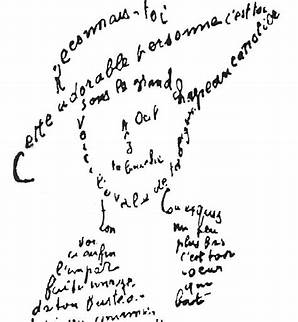 Reconnais-toi
Cette adorable personne c'est toi
Sous le grand chapeau canotier
Oeil
Nez
La bouche
Voici l'ovale de ta figure
Ton
Cou exquis
Voi
ci enfin
l'impar
faite image
de ton buste a
un peu
plus bas
c'est ton
coeur
qui
bat